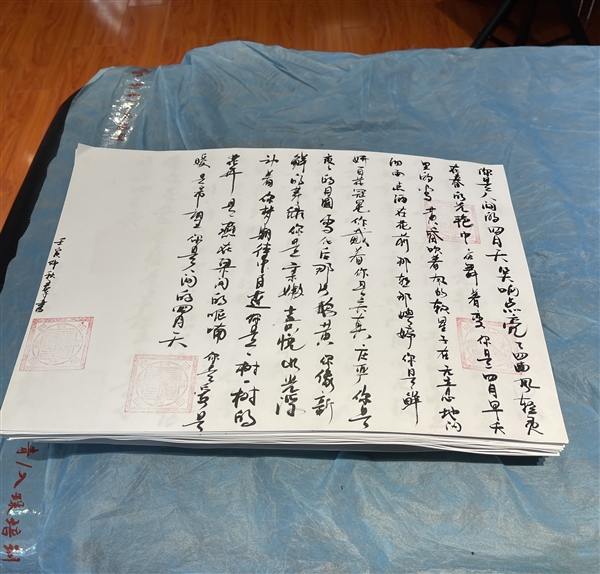 你是人间的四月天笑响点亮了四面风轻灵
在春的光艳中交舞着变你是四月早天
里的云黄昏吹着风的软星子在无意地闪
细雨点洒在花前那轻那娉婷你是鲜
妍百花冠冕你戴着你是天真庄严你是
夜夜的月圆雪化后那片鹅黄你像新
鲜的芽绿你是柔嫩喜悦水光浮
动着你梦期待中白莲你是一树一树的
花开是燕在梁间的呢喃你是爱是
暖是希望你是人间的四月天
年秋书
培训